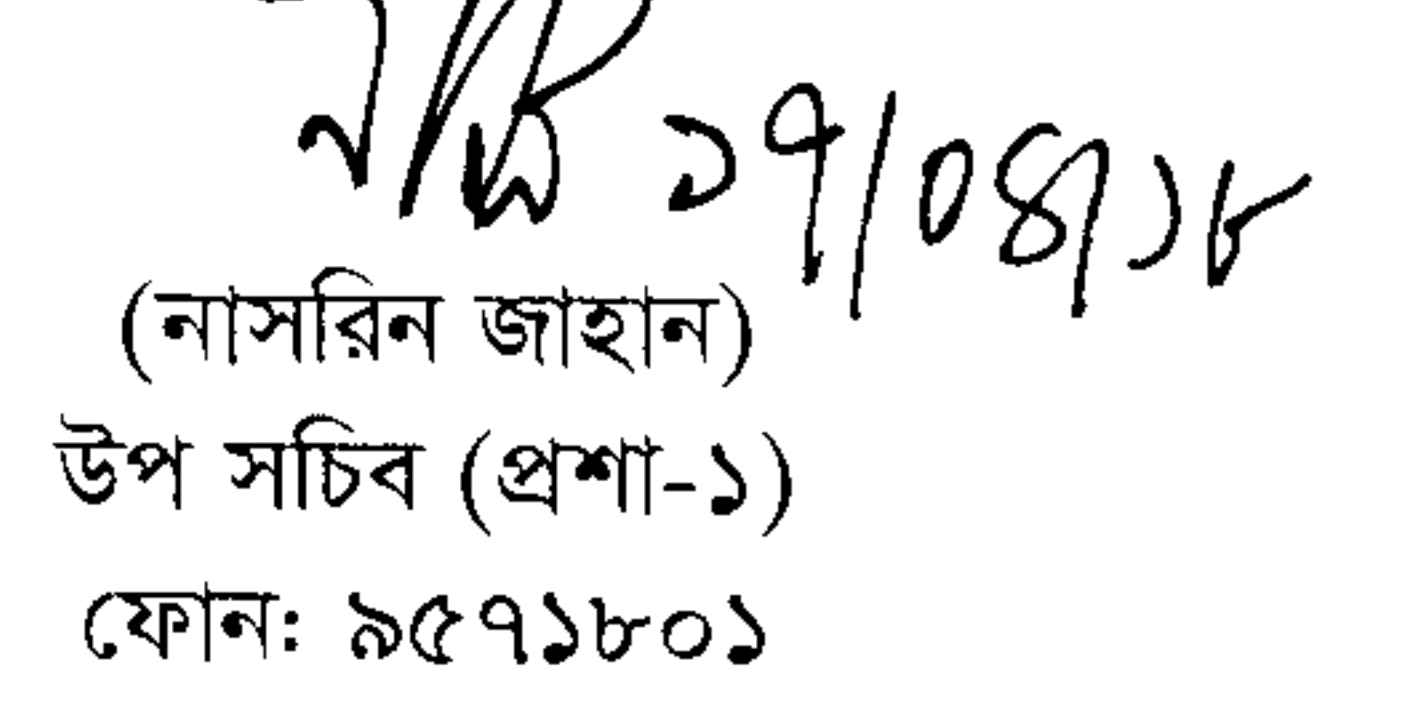 ১৭/০৪/১৮
(নাসরিন জাহান)
উপ সচিব (প্রশা-১)
ফোন: ৯৫৭১৮০১